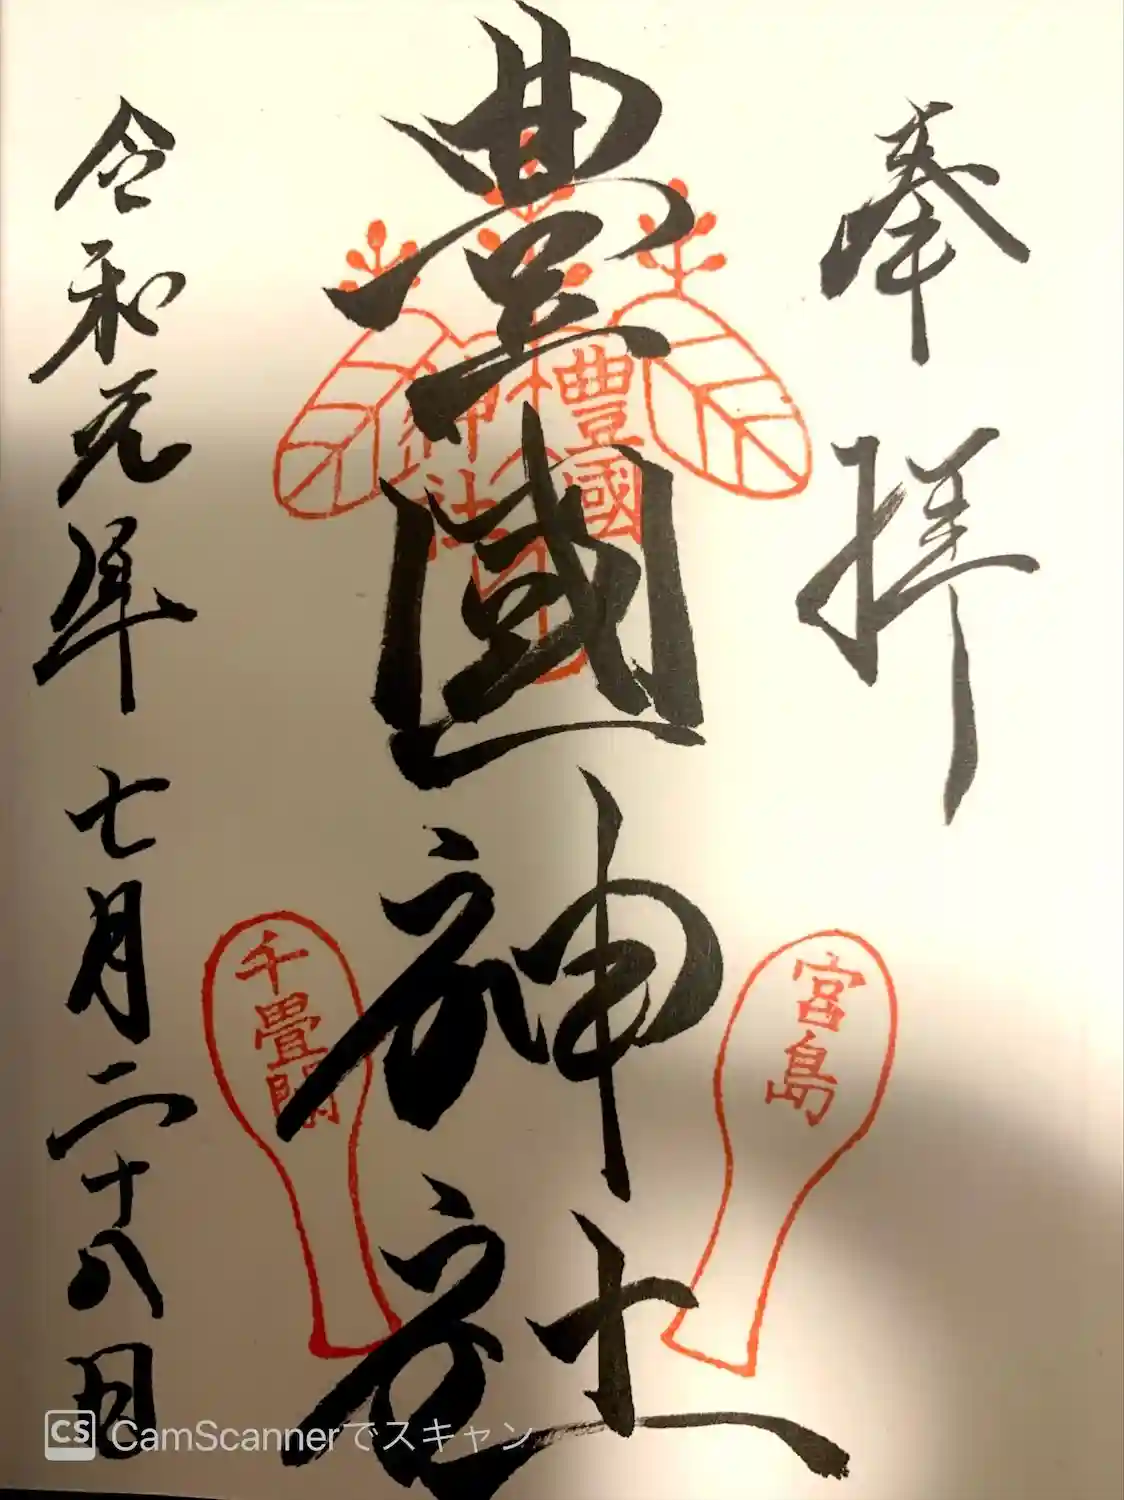 奉拝
豊國神社
豊國
神社
宮島
千畳閣
令和元年七月二十八日
CS CamScannerでスキャン